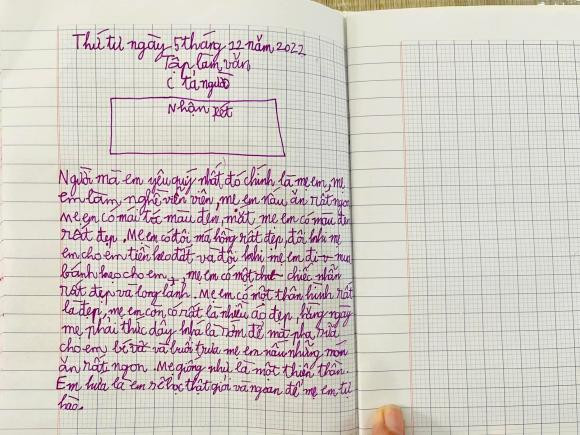 Thứ tư ngày 5 tháng 12 năm 2022
Tập làm văn
( tả người)
Nhận xét
Người mà em yêu quý nhất đó chính là mẹ em, mẹ
em làm nghề viên viên, mẹ em nấu ăn rất ngon
Mẹ em có mái tóc màu đen, mắt mẹ em có màu đen
rất đẹp. Mẹ em có đôi má hồng rất đẹp, đôi khi mẹ
em cho em tiền heo đất và đôi khi mẹ em đi mua
bánh kẹo cho em, mẹ em có một chiếc nhẫn
rất đẹp và long lanh. Mẹ em có một thân hình rất
là đẹp, mẹ em còn có rất là nhiều áo đẹp, hằng ngày
mẹ phải thức dậy khá là sớm để mà pha sữa
cho em bé và buổi trưa mẹ em nấu những món
ăn rất ngon. Mẹ giống như là một thiên thần.
Em hứa là em sẽ học thật giỏi và ngoan để mẹ em tự
hào.